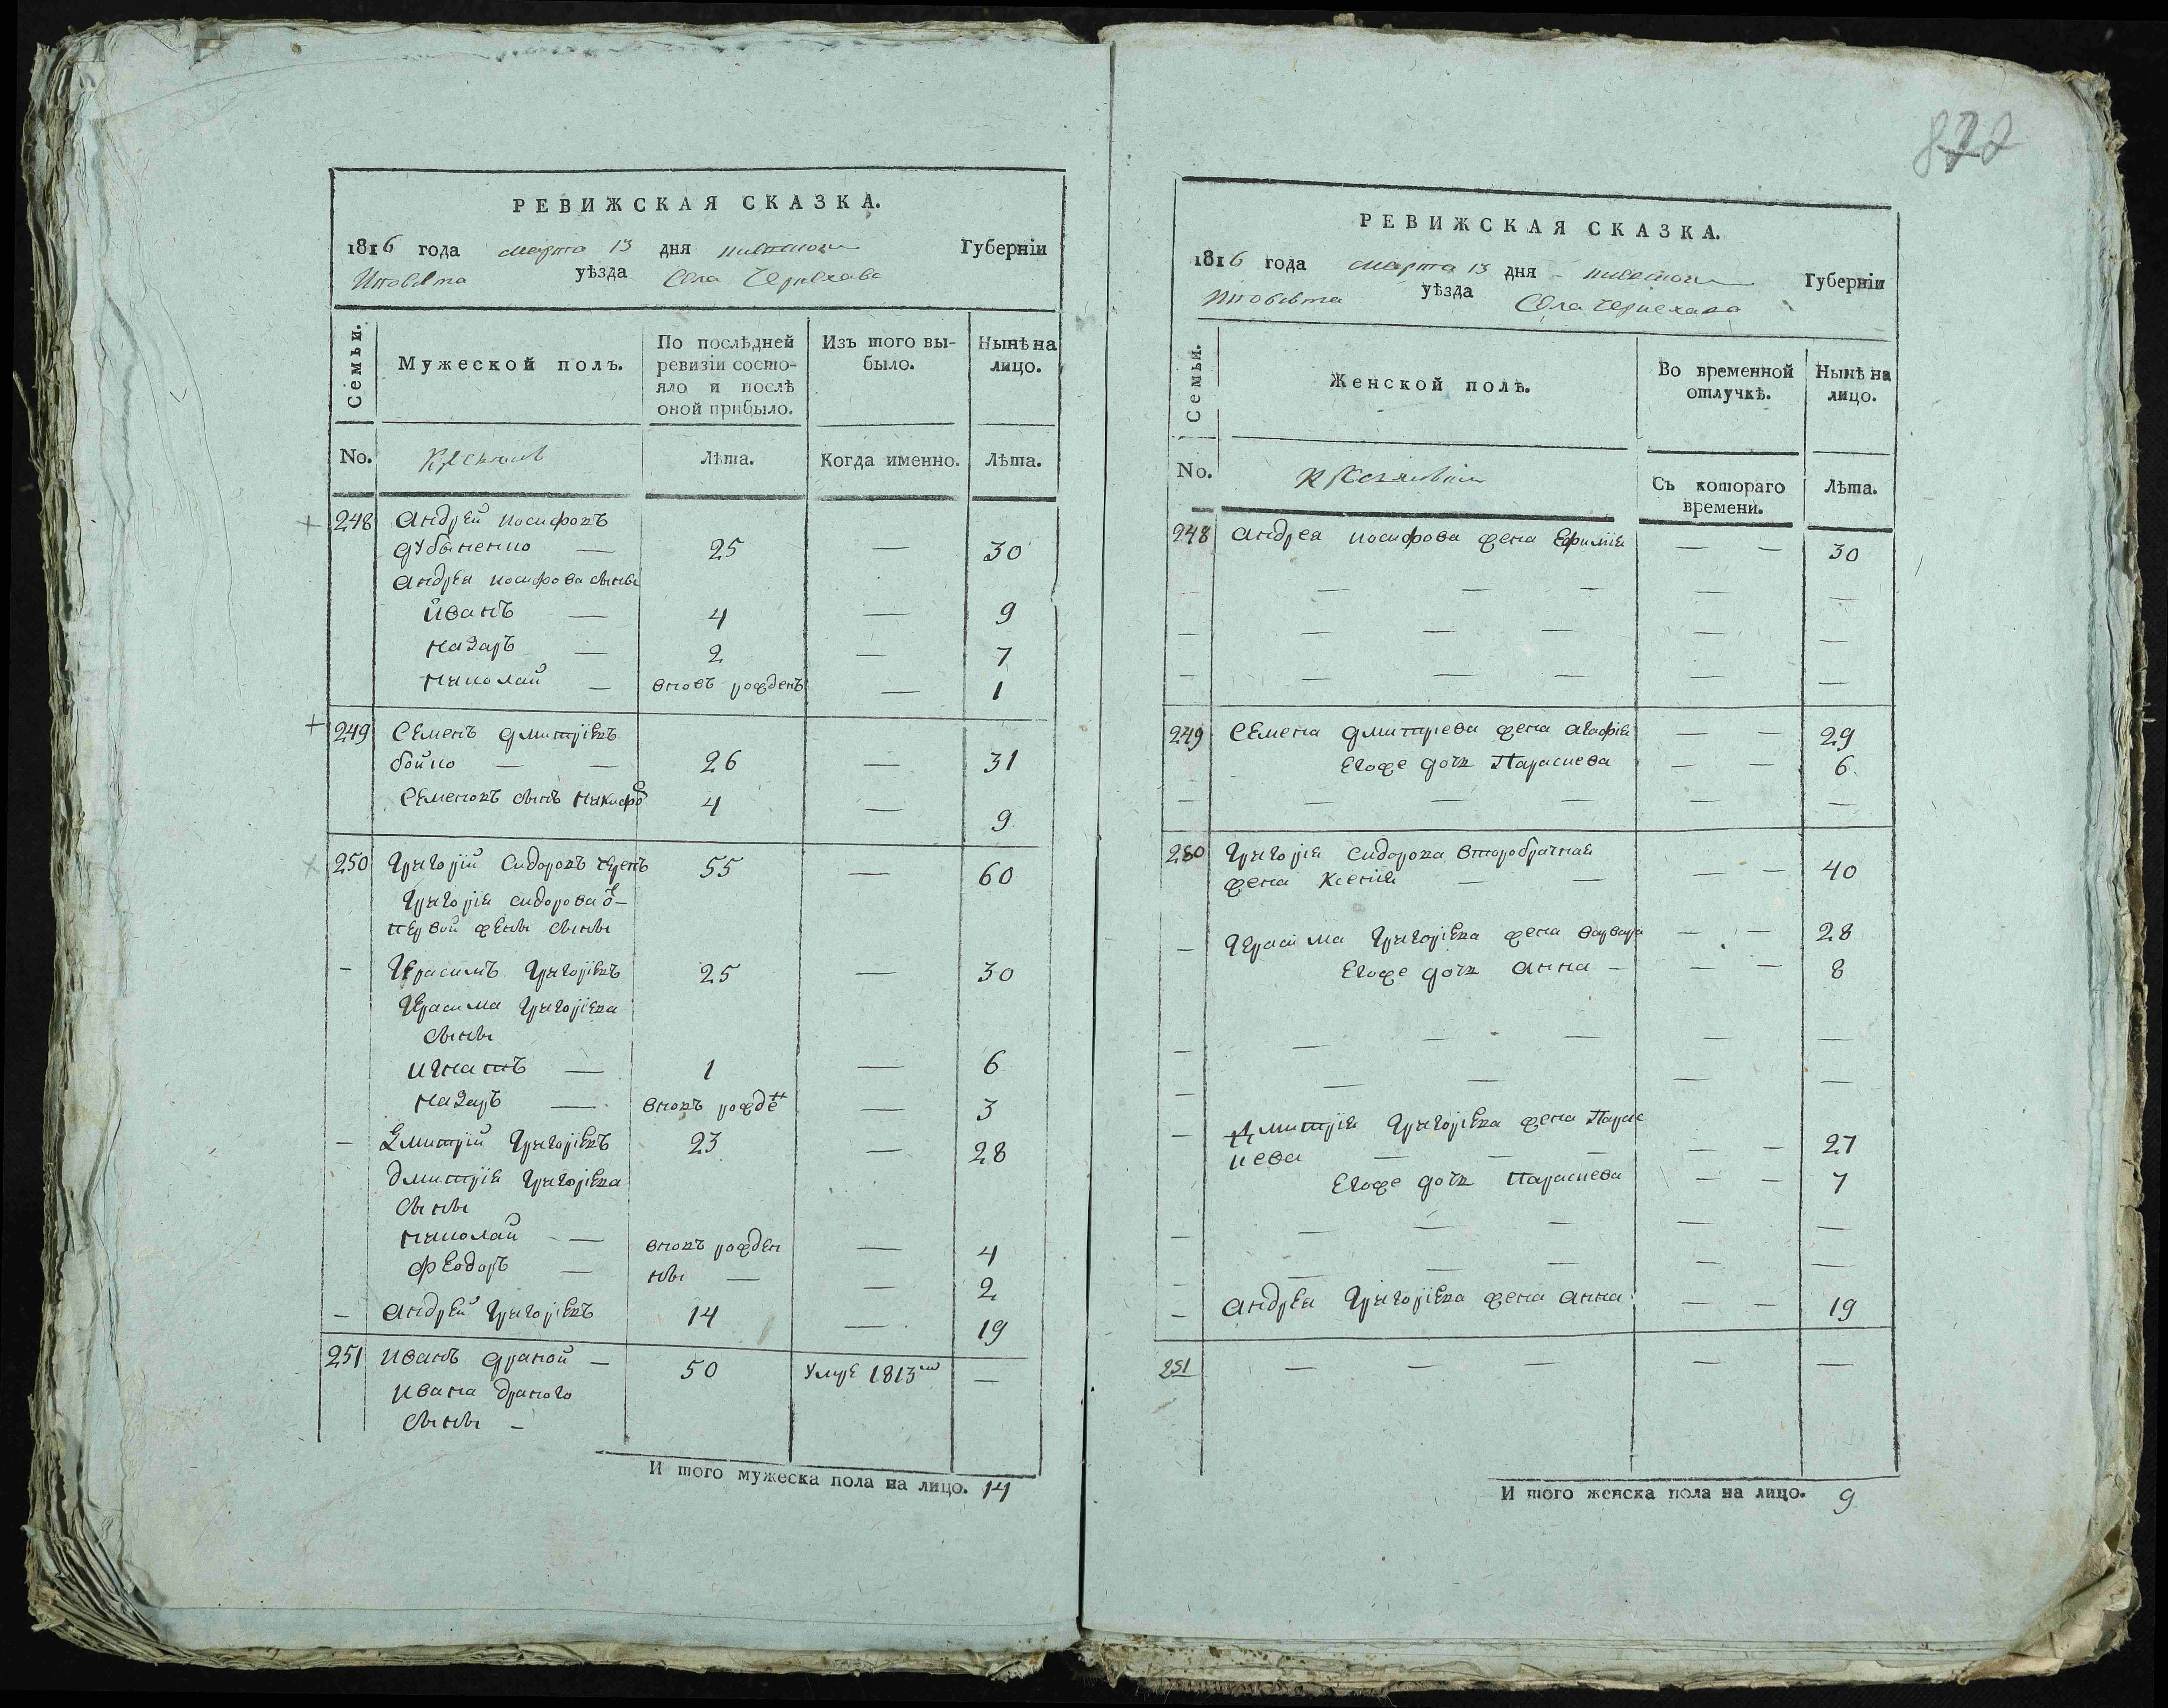 872
РЕВИЖСКАЯ СКАЗКА.
1816 года марта 13 дня Губерніи
уѣзда Села Чернехава
Семьи.
Мужеской полъ.
По послѣдней ревизіи состояло и послѣ оной прибыло.
Изъ того выбыло.
Нынѣ на лицо.
No.
Лѣта.
Когда именно.
Лѣта.
248 Андрей Иосифовъ
— 25 — 30
Андрея Иосифова сыны
Иванъ — 4 — 9
Назаръ — 2 — 7
Николай — вновь рожденъ — 1
249 Семенъ Дмитріевъ
Бойко — — 26 — 31
Семеновъ сынъ Никифо 4 — 9
250 Григорій Сидоровъ 55 — 60
Григорія Сидорова о—
первой жены сыны
— Герасимъ Григоріевъ 25 — 30
Герасима Григоріева
сыны
Игнатъ — 1 — 6
Назаръ — вновь рожде — 3
— Дмитрій Григоріевъ 23 — 28
Дмитрія Григоріева
сыны
Николай — вновь рожден — 4
Феодоръ — ны — — 2
— Андрей Григоріевъ 14 — 19
251 Иванъ Драной — 50 умре 1813 —
Ивана Драного
сыны —
И того мужеска пола на лицо. 14
РЕВИЖСКАЯ СКАЗКА.
1816 года марта 13 дня Губерніи
уѣзда Села Чернехава
Семьи.
Женской полъ.
Во временной отлучкѣ.
Нынѣ на лицо.
No.
Съ котораго времени.
Лѣта.
248 Андрея Иосифова жена Ефимія — — 30
249 Семена Дмитріева жена Агафія — — 29
Егоже дочь Параскева — — 6
250 Григорія Сидорова второбрачная
жена Ксенія — — — — 40
— Герасима Григоріева жена Варвара — — 28
Егоже дочь Анна — — — 8
— Дмитрія Григоріева жена Парас
кева — — — — — 27
Егоже дочь Параскева — — 7
— Андрея Григоріева жена Анна — — 19
251 — — — — —
И того женска пола на лицо. 9